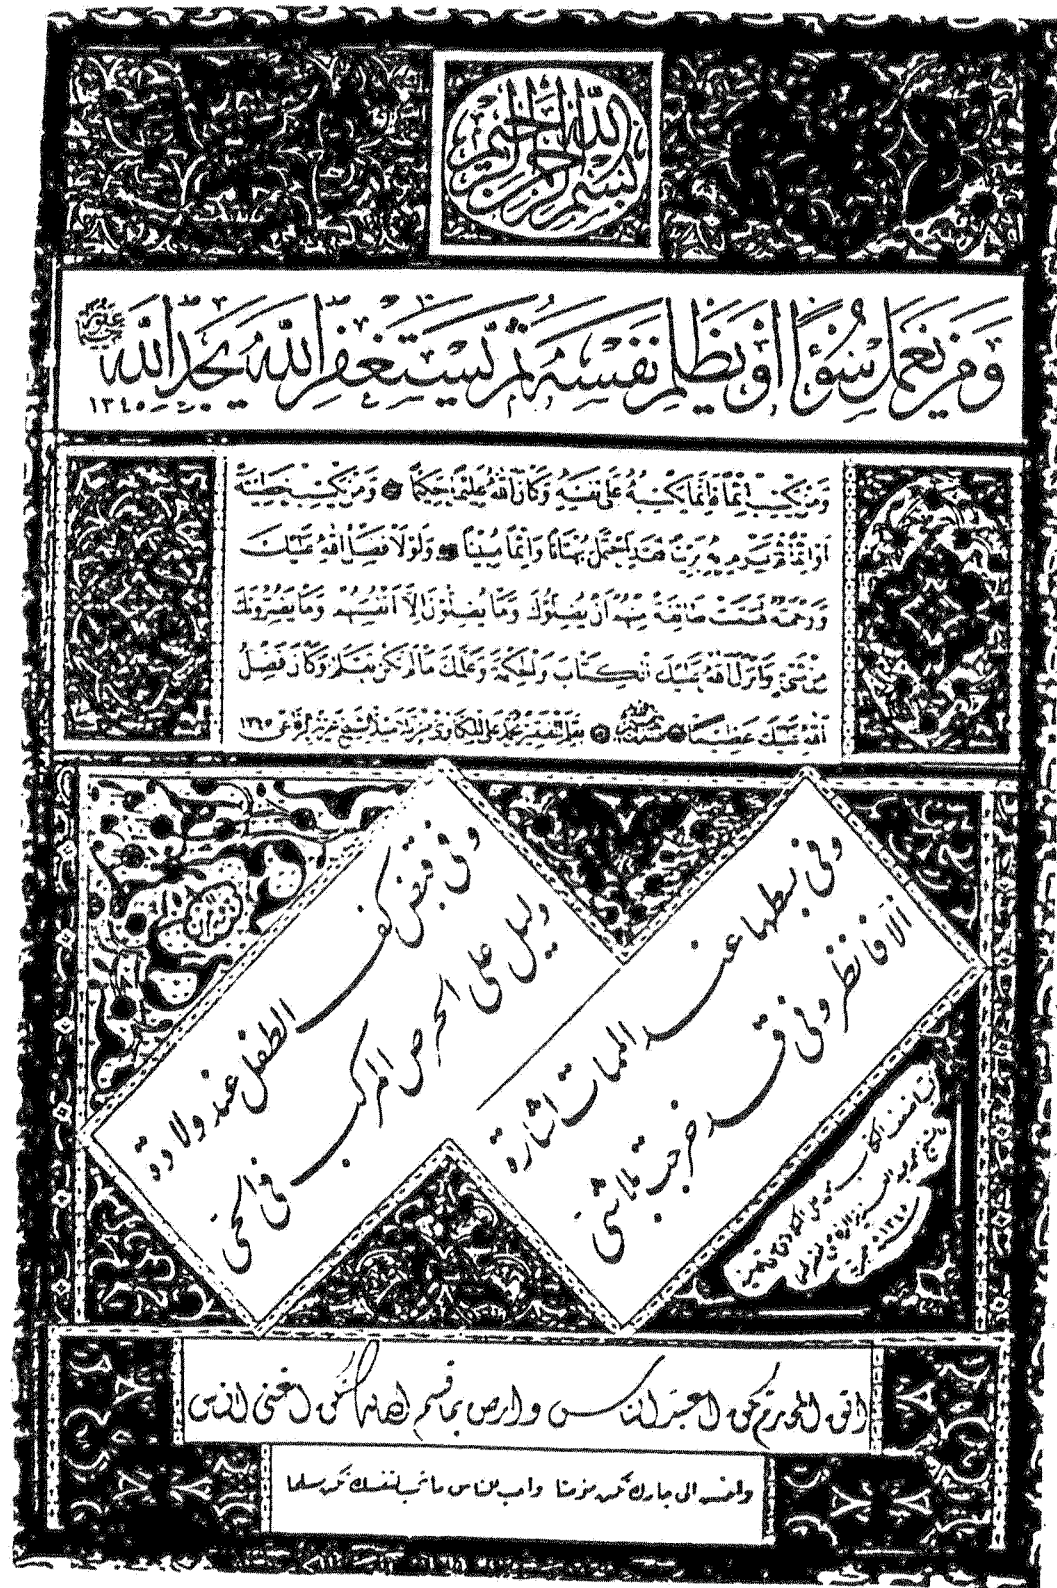 بسم الله الرحمن الرحيم
وَمَنْ يَعْمَلْ سُوءًا أَوْ يَظْلِمْ نَفْسَهُ ثُمَّ يَسْتَغْفِرِ اللهَ يَجِدِ اللهَ
١٣٤٥
وَمَنْ يَكْسِبْ اِثْمًا فَاِنَّمَا يَكْسِبُهُ عَلٰى نَفْسِهٖ وَكَانَ اللهُ عَلِيمًا حَكِيمًا وَمَنْ يَكْسِبْ خَطِيئَةً
اَوْ اِثْمًا ثُمَّ يَرْمِ بِهٖ بَرِيئًا فَقَدِ احْتَمَلَ بُهْتَانًا وَاِثْمًا مُبِينًا وَلَوْلَا فَضْلُ اللهِ عَلَيْكَ
وَرَحْمَتُهُ لَهَمَّتْ طَائِفَةٌ مِنْهُمْ اَنْ يُضِلُّوكَ وَمَا يُضِلُّونَ اِلَّا اَنْفُسَهُمْ وَمَا يَضُرُّونَكَ
مِنْ شَيْءٍ وَاَنْزَلَ اللهُ عَلَيْكَ الْكِتَابَ وَالْحِكْمَةَ وَعَلَّمَكَ مَا لَمْ تَكُنْ تَعْلَمُ وَكَانَ فَضْلُ
اللهِ عَلَيْكَ عَظِيمًا الفقير محمد علي المكاوي من تلاميذ الشيخ عزيز الرفاعي ١٣٤٥
وفي قبض كف الطفل عند ولادة
دليل على الحرص المركب في الحي
وفي بسطها عند الممات اشارة
الا فانظروني قد خرجت بلا شي
محمد علي المكاوي
الشيخ محمد عبد العزيز الرفاعي
١٣٤٥
اتق المحارم تكن اعبد الناس وارض بما قسم الله لك تكن اغنى الناس
واحسن الى جارك تكن مؤمنا واحب للناس ما تحب لنفسك تكن مسلما